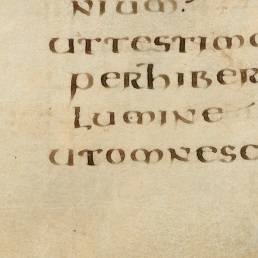 nium.
uttestimo
perhiber
lumine
utomnesc